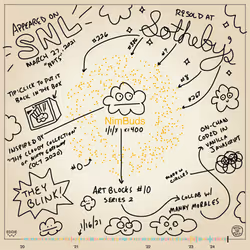 APPEARED ON
SNL
MARCH 27, 2021
"NFTS"
RESOLD AT
Sotheby's
#226
TIP: CLICK TO PUT IT
BACK IN THE BOX
#8
#267
NimBuds
1/1/X x400
INSPIRED BY
"THE CLOUDY COLLECTION"
(OCT 2020)
ON-CHAIN
CODED IN
VANILLA
JAVASCRIPT
#0
THEY
BLINK!
ART BLOCKS #10
SERIES 2
CIRCLES
COLLAB W/
MANNY MORALES
1/16/21